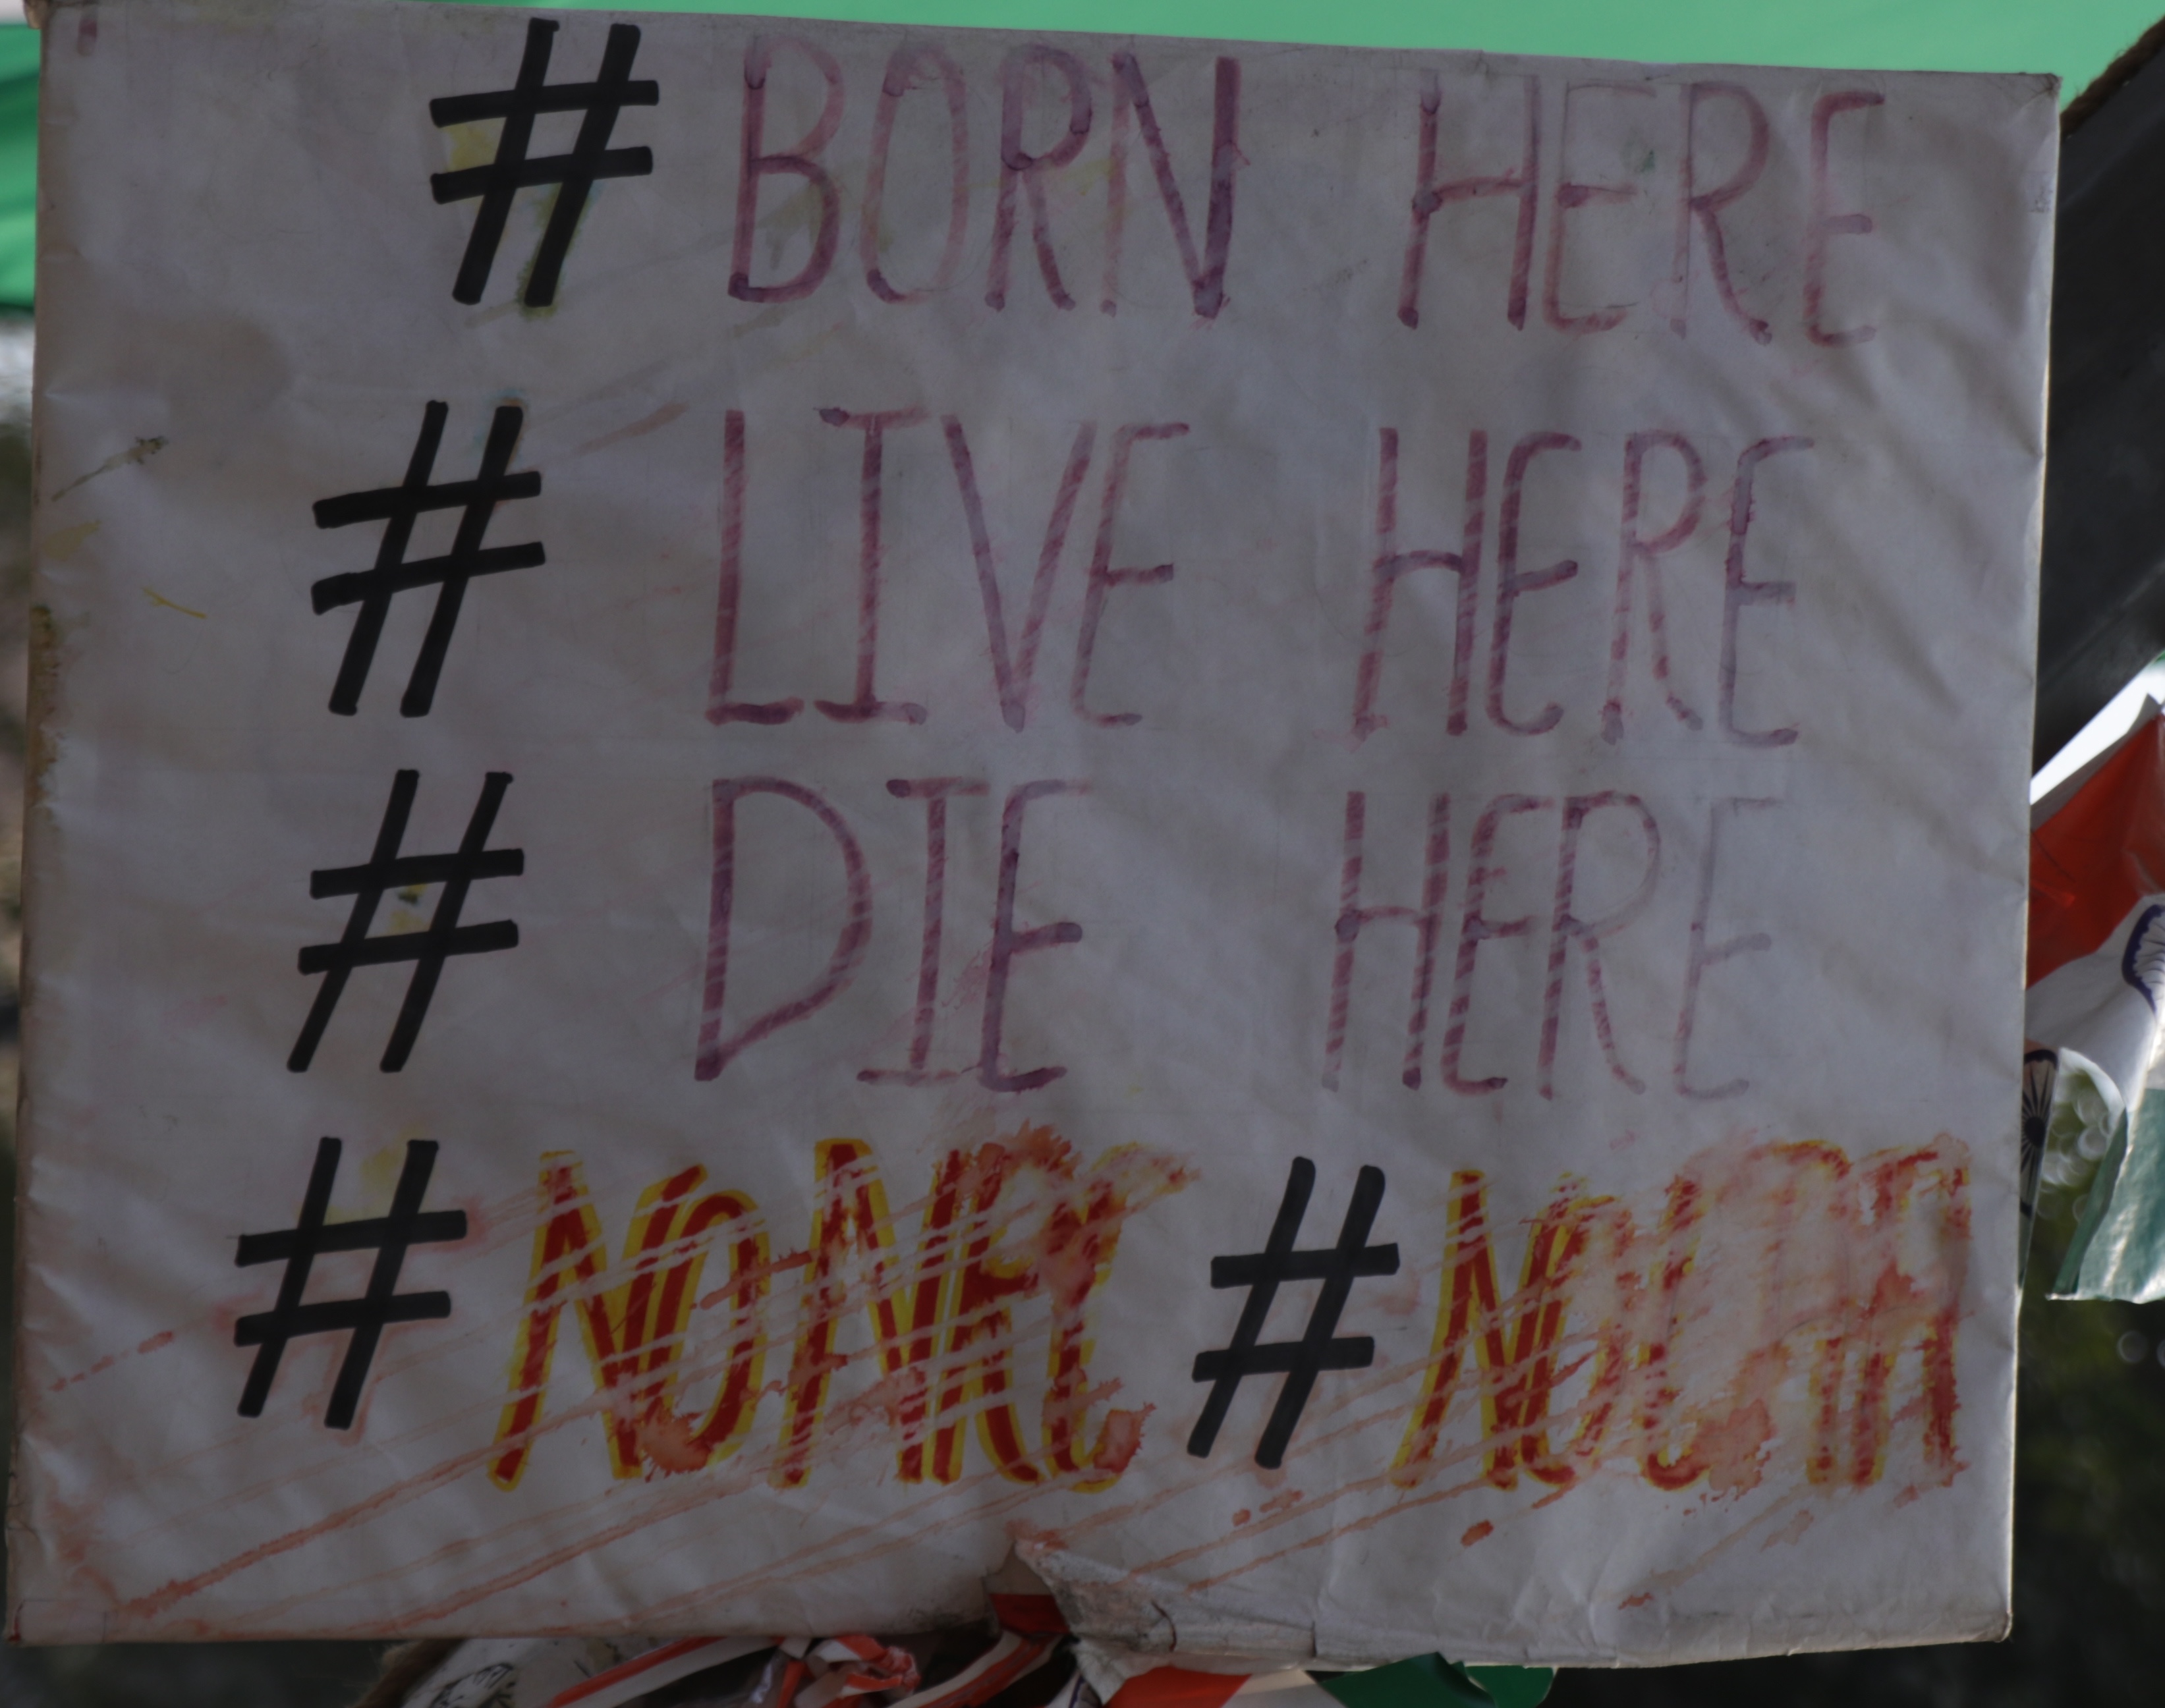 # BORN HERE
# LIVE HERE
# DIE HERE
# NO NRC # NO CAA